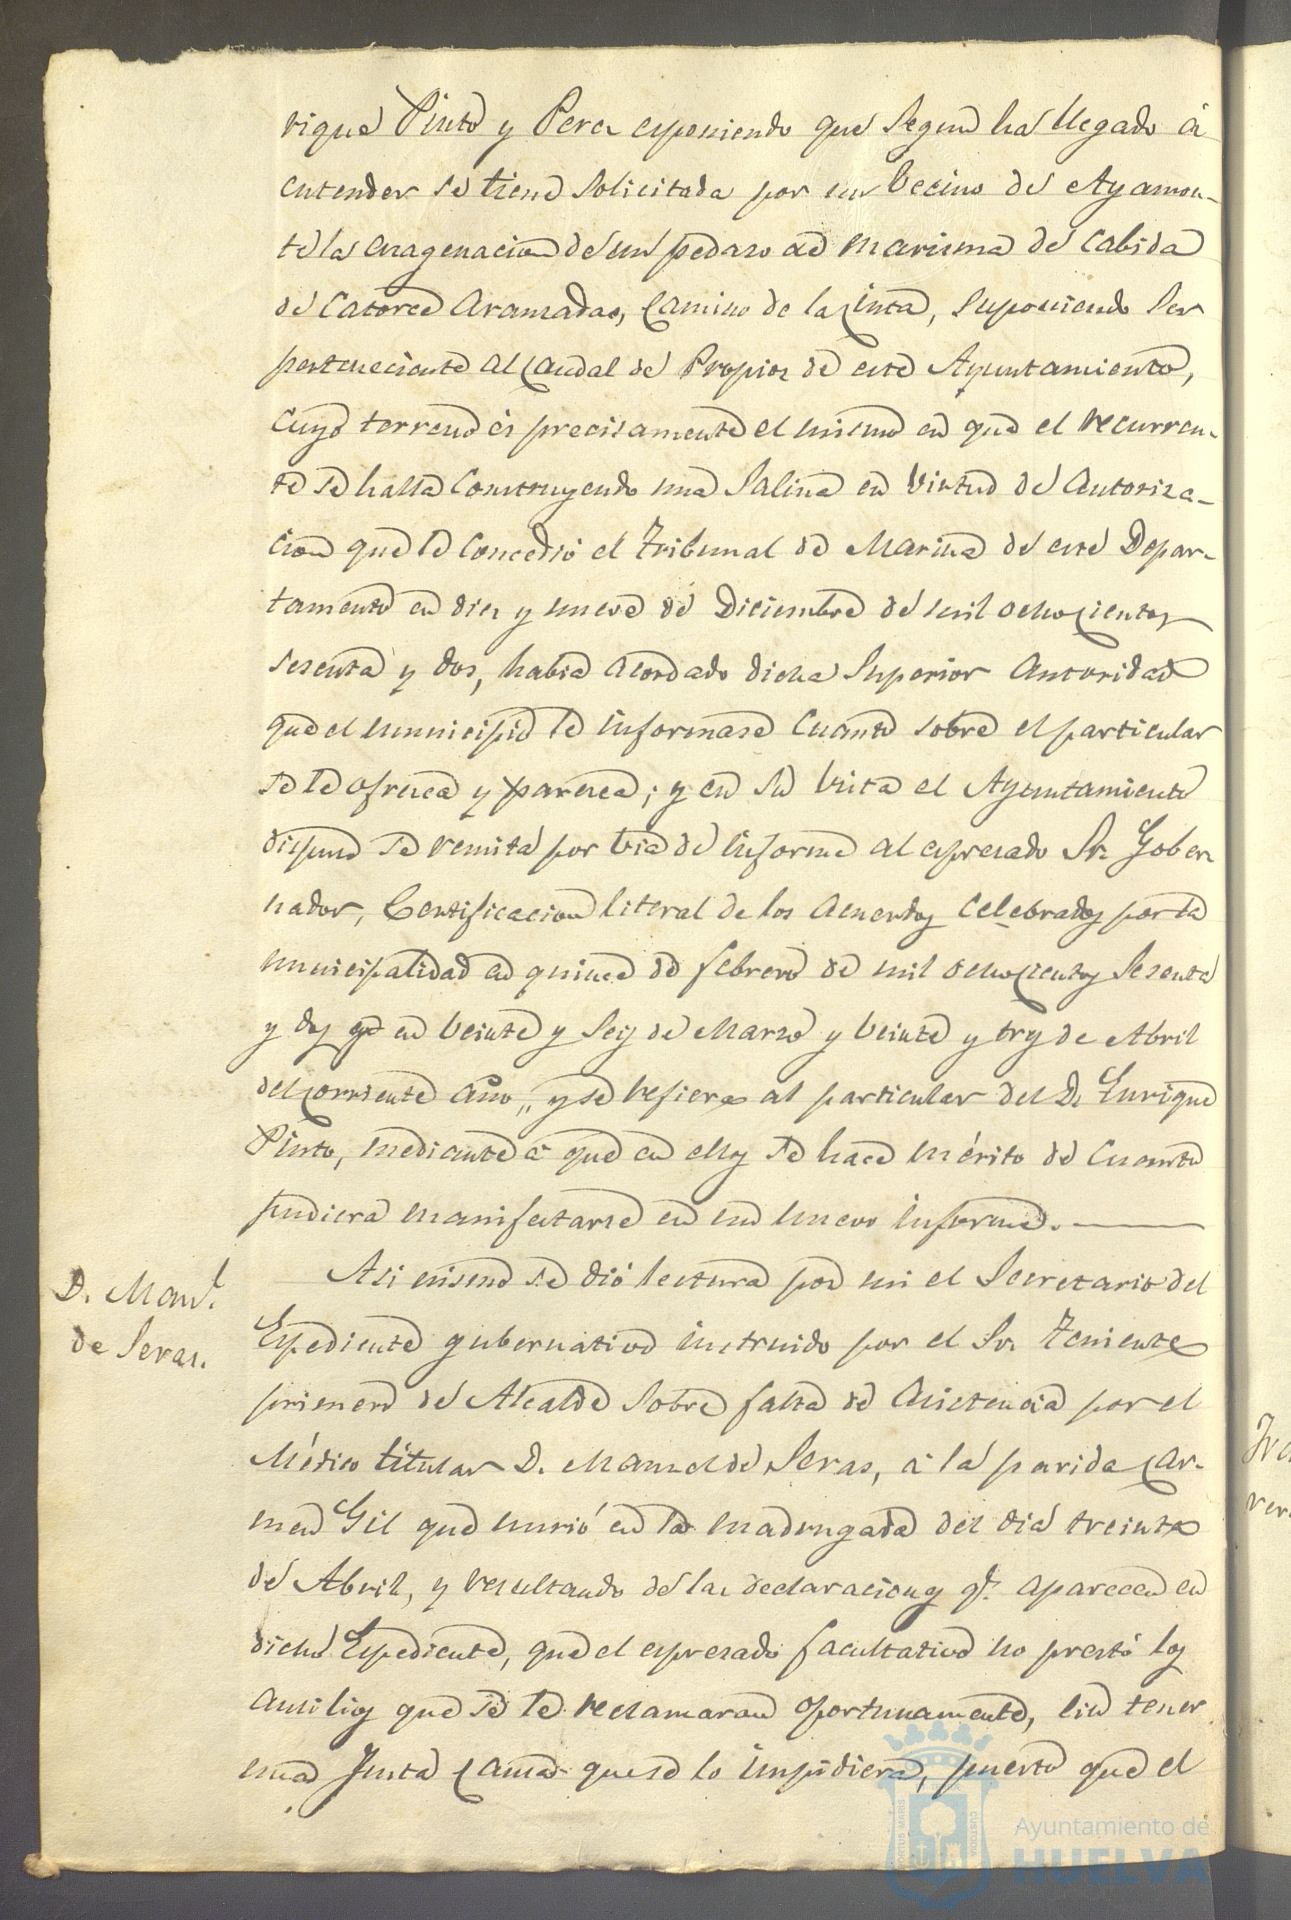 rique Pinto y Perez esponiendo que segun ha llegado á
entender se tiene solicitada por un Vecino de Ayamon-
te la enagenacion de un pedazo de marisma de cabida
de catorce aranzadas, camino de la Cinta, suponiendo ser
perteneciente al caudal de Propios de este Ayuntamiento,
cuyo terreno es precisamente el mismo en que el recurren-
te se halla construyendo una Salina en virtud de autoriza-
cion que le concedió el Tribunal de Marina de este Depar-
tamento en diez y nueve de Diciembre de mil ochocientos
sesenta y dos, habia acordado dicha Superior Autoridad
que el municipio le informase cuanto sobre el particular
se le ofrezca y parezca; y en su vista el Ayuntamiento
dispuso se remita por via de informe al espresado Sr. Gober
nador, Certificacion literal de los acuerdos celebrados por la
municipalidad en quince de febrero de mil ochocientos sesenta
y dos y en veinte y seis de Marzo y veinte y tres de Abril
del corriente año, y se refiere al particular del D. Enrique
Pinto, mediante á que en ellos se hace mérito de cuanto
pudiera manifestarse en un nuevo informe.
D. Manl.
de Seras.
Asi mismo se dió lectura por mi el Secretario del
Espediente gubernativo instruido por el Sr. Teniente
primero de Alcalde sobre falta de asistencia por el
Médico titular D. Manuel de Seras, á la parida Car-
men Gil que murió en la madrugada del dia treinta
de Abril, y resultando de las declaraciones qe. aparecen en
dicho Espediente, que el espresado facultativo no prestó los
ausilios que se le reclamaron oportunamente, sin tener
una justa causa que se lo impidiera, puesto que el
Ayuntamiento de
HUELVA
PORTUS MARIS
CUSTODIA